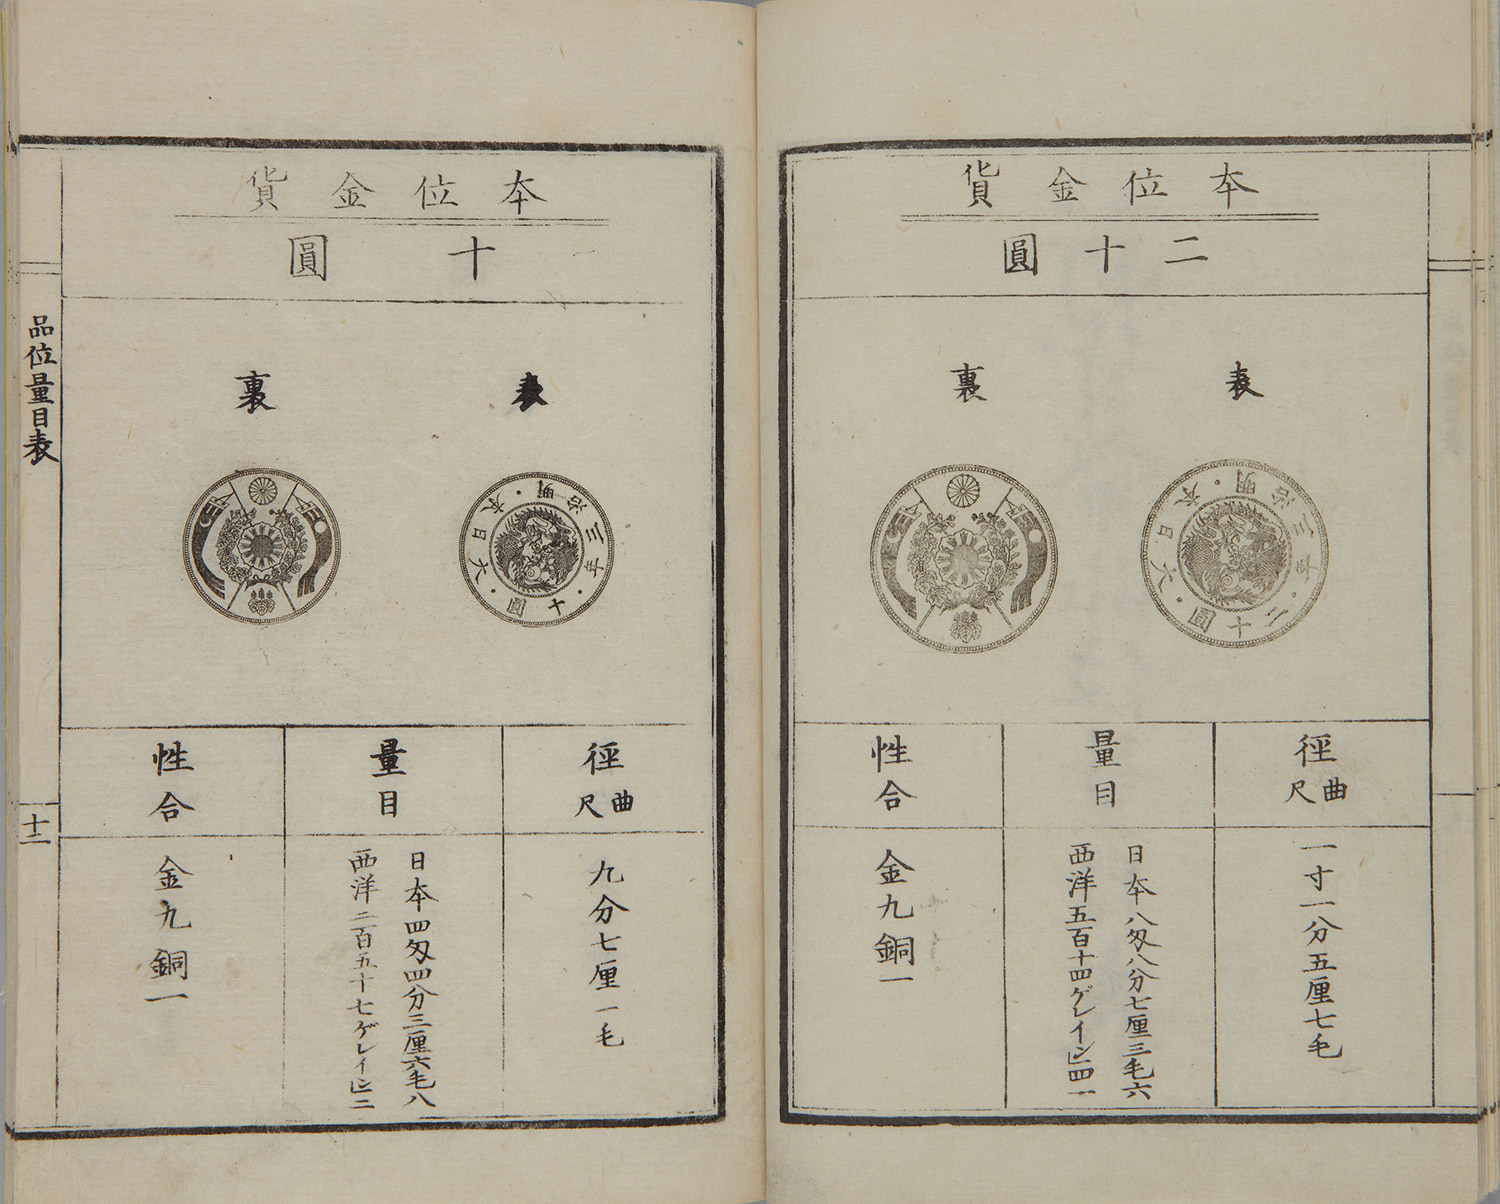 本位金貨
二十圓
表
裏
大日本・明治三年・二十圓・
徑 曲尺
一寸一分五厘七毛
量目
日本八匁八分七厘三毛六
西洋五百十四ゲレイン四一
性合
金九銅一
本位金貨
十圓
表
裏
大日本・明治三年・十圓・
徑 曲尺
九分七厘一毛
量目
日本四匁四分三厘六毛八
西洋二百五十七ゲレイン二
性合
金九銅一
品位量目表
十二